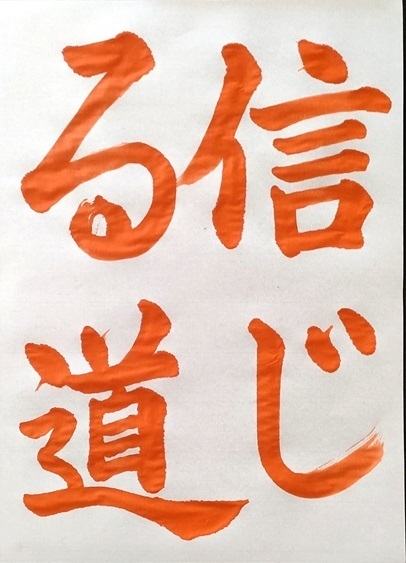 信じ
る道